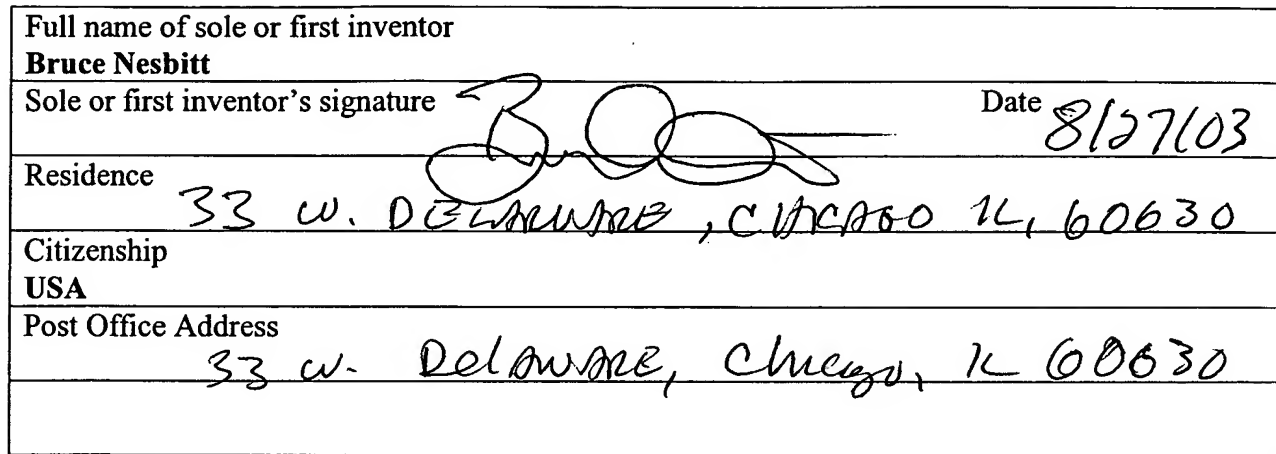 Full name of sole or first inventor
Bruce Nesbitt
Sole or first inventor's signature Date 8/27/03
Residence
33 W. DELAWARE, CHICAGO IL, 60630
Citizenship
USA
Post Office Address
33 W. DelAWARE, Chicago, IL 60630